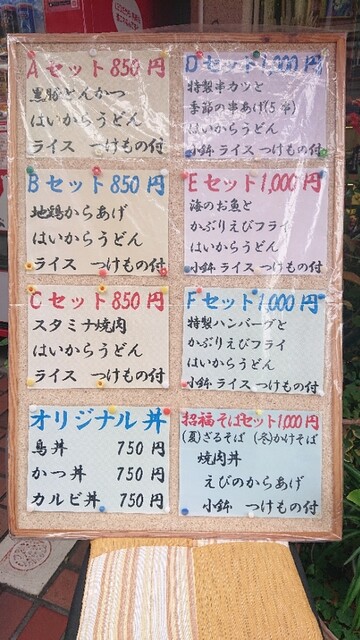 Aセット850円
黒豚とんかつ
はいからうどん
ライス つけもの付
Bセット850円
地鶏からあげ
はいからうどん
ライス つけもの付
Cセット850円
スタミナ焼肉
はいからうどん
ライス つけもの付
オリジナル丼
鳥丼 750円
かつ丼 750円
カルビ丼 750円
Dセット1,000円
特製串カツと
季節の串あげ(5本)
はいからうどん
小鉢 ライス つけもの付
Eセット1,000円
海のお魚と
かぶりえびフライ
はいからうどん
小鉢 ライス つけもの付
Fセット1,000円
特製ハンバーグと
かぶりえびフライ
はいからうどん
小鉢 ライス つけもの付
招福そばセット1,000円
(夏)ざるそば (冬)かけそば
焼肉丼
えびのからあげ
小鉢 つけもの付